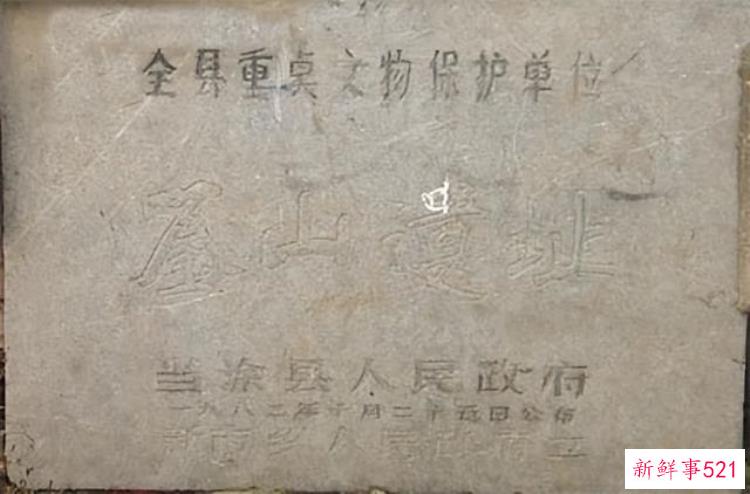 全县重点文物保护单位
山遗址
当涂县人民政府
一九八二年十月二十五日公布
乡人民政府立
新鲜事521